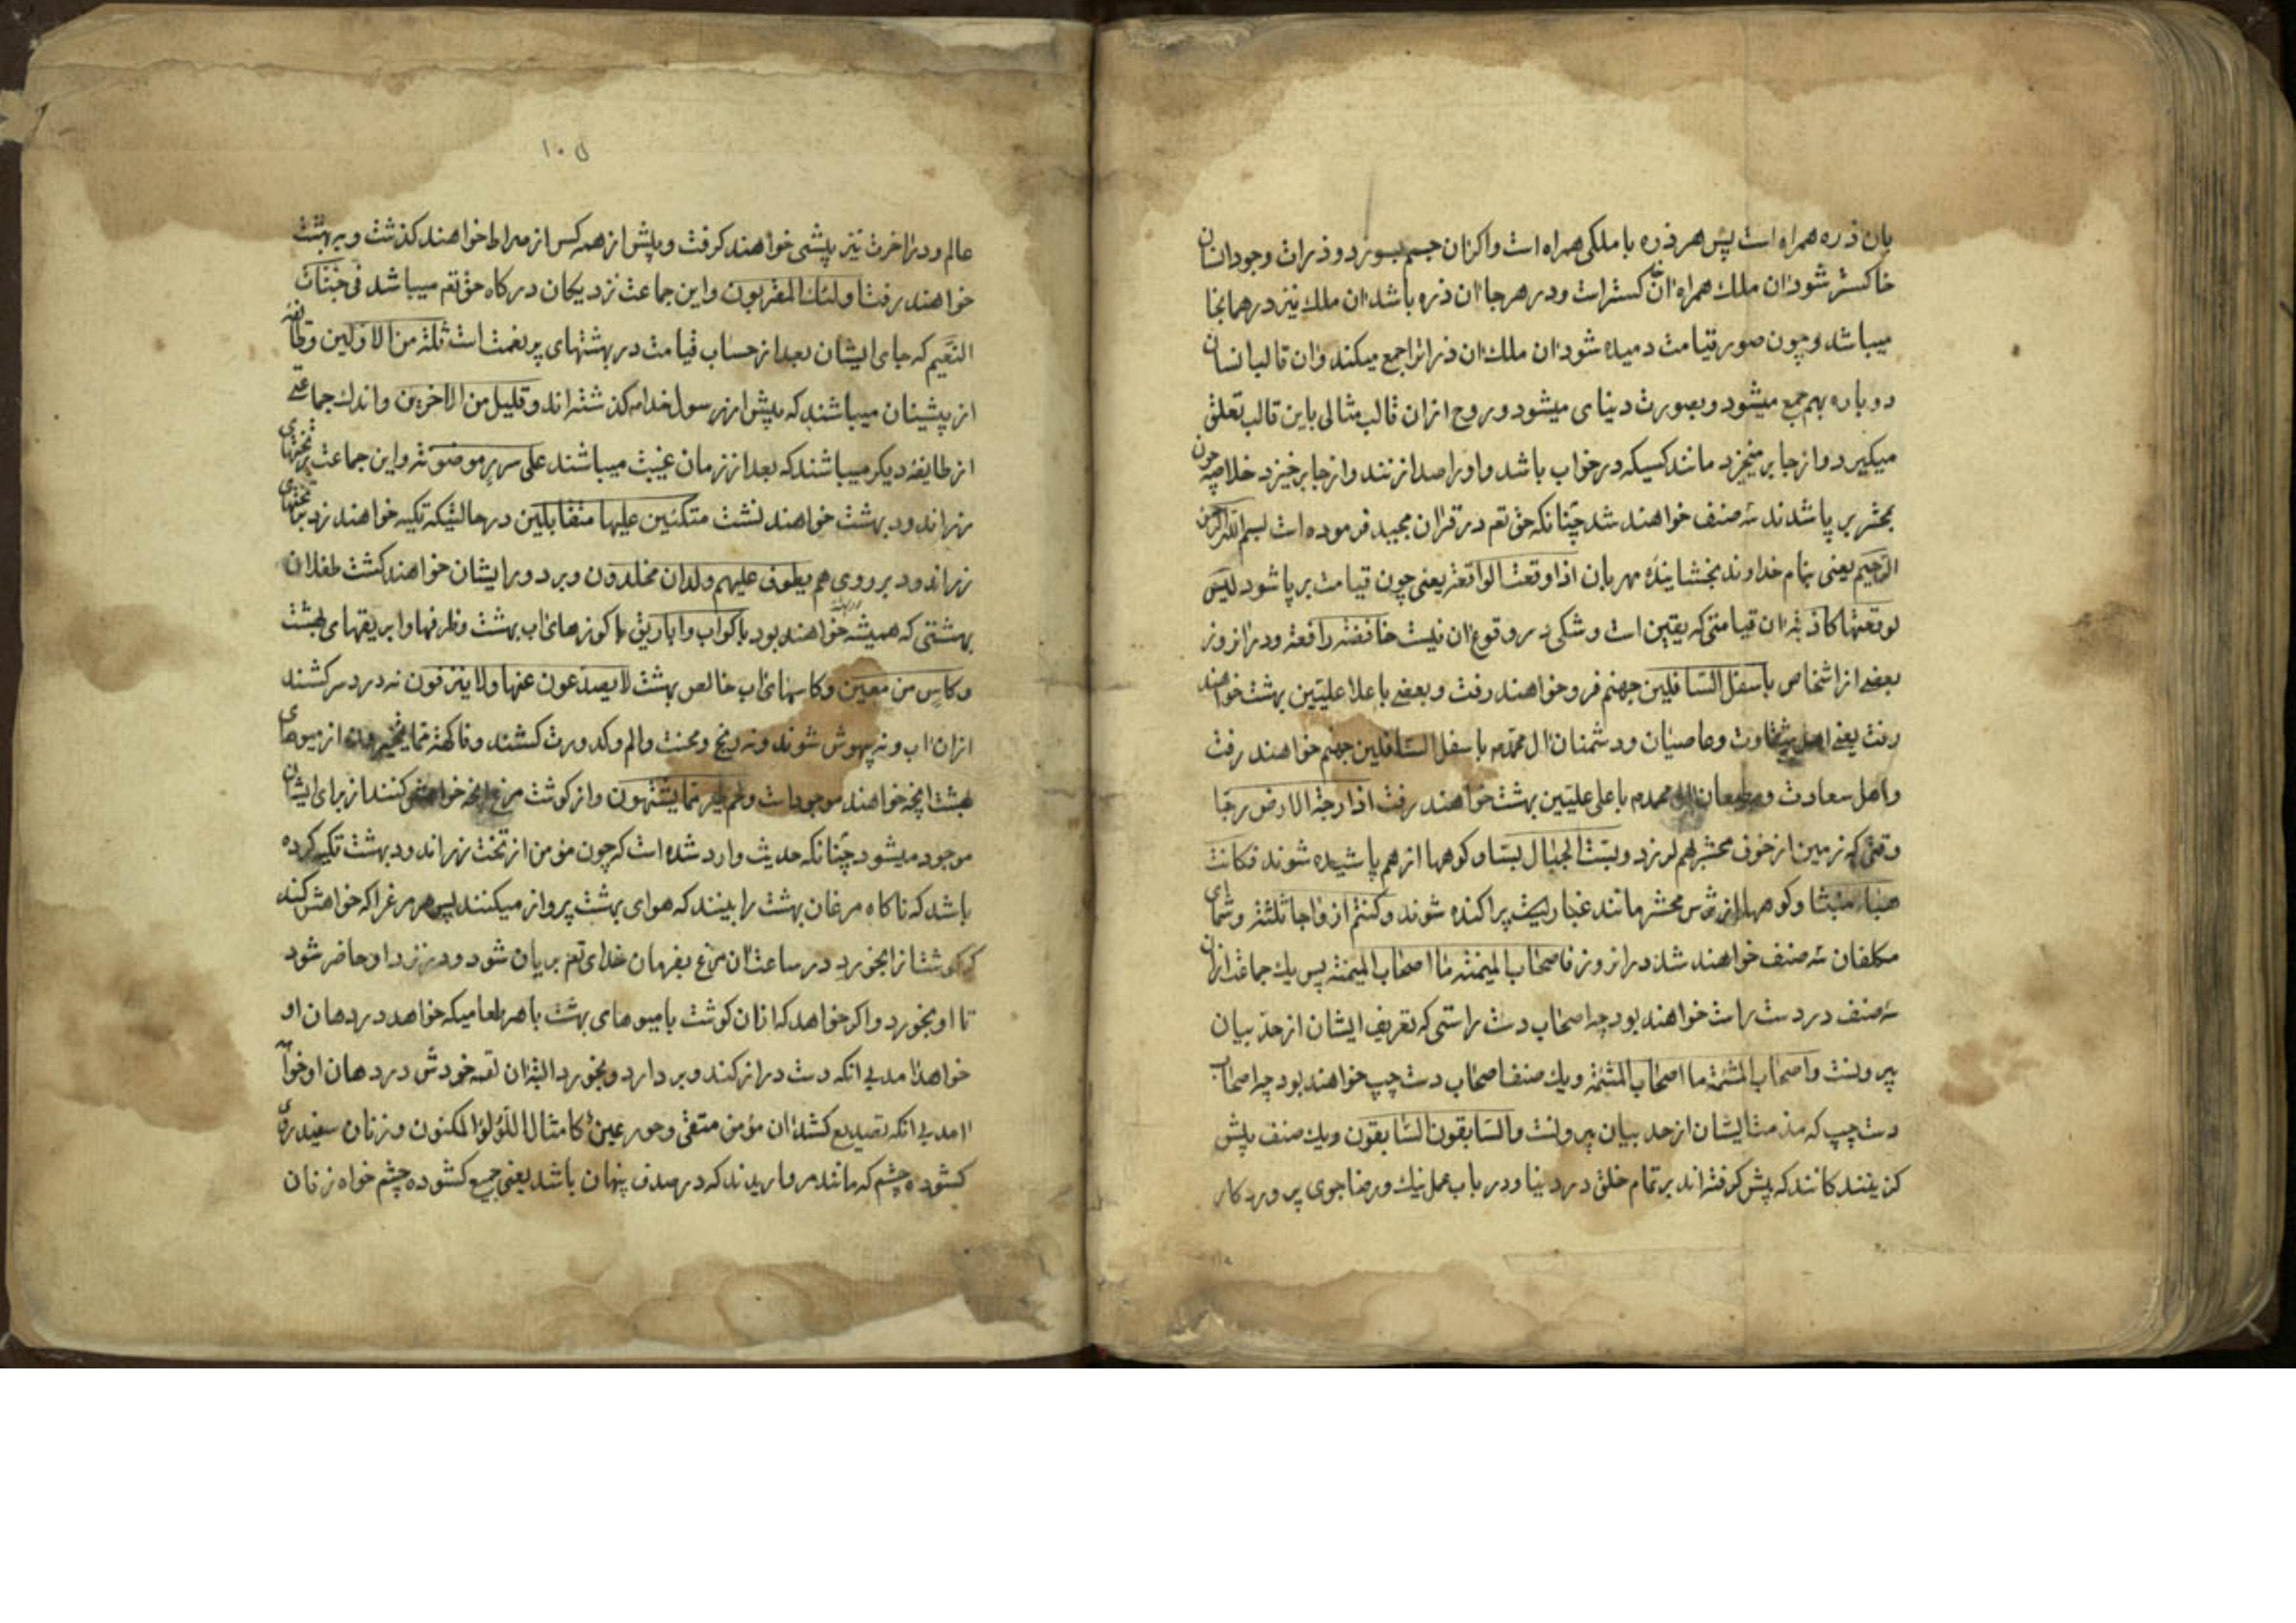 بان ذره همراه است پس هر ذره با ملکی همراه است واکر ان جسم بسوزد و ذرات وجود انسان
خاکستر شود ان ملك همراه ان خاکستر است و در هر جا ان ذره باشد ان ملك نیز در همانجا
میباشد و چون صور قیامت دمیده شود ان ملك ان ذرات را جمع میکند و ان قالب انسان
دوباره بهم جمع میشود و بصورت دنیای میشود و روح از ان قالب مثالی باین قالب تعلق
میکیرد و از جا بر میخیزد مانند کسیکه در خواب باشد و او را صدا زنند و از جا بر خیزد خلاصه چون
بمحشر بر پا شدند سه صنف خواهند شد چنانکه حق تعم در قران مجید فرموده است بسم الله الرحمن
الرحیم یعنی بنام خداوند بخشاینده مهربان اذا وقعت الواقعة یعنی چون قیامت بر پا شود لیس
لوقعتها کاذبة ان قیامتی که یقین است و شکی در وقوع ان نیست خافضة رافعة و در ان روز
بعضی از اشخاص باسفل السافلین جهنم فرو خواهند رفت و بعضی باعلا علیین بهشت خواهند
رفت یعنی اهل شقاوت و عاصیان و دشمنان ال محمد باسفل السافلین جهنم خواهند رفت
و اهل سعادت و مطیعان ال محمد باعلی علیین بهشت خواهند رفت اذا رجة الارض رجا
وقتی که زمین از خوف محشر بهم لرزد و بست الجبال بسا و کوهها از هم پاشیده شوند فکانت
هباء منبثا و کوهها از ترس محشر مانند غبار پراکنده شوند و کنتم ازواجا ثلثة و شما ای
مکلفان سه صنف خواهند شد در انروز فاصحاب المیمنة ما اصحاب المیمنة پس یك جماعت از ان
سه صنف در دست راست خواهند بود چه اصحاب دست راستی که تعریف ایشان از حد بیان
بیرونست و اصحاب المشئمة ما اصحاب المشئمة و یك صنف اصحاب دست چپ خواهند بود چه اصحاب
دست چپ که مذمت ایشان از حد بیان بیرونست و السابقون السابقون و یك صنف پیش
کزینند کانند که پیش کرفته اند بر تمام خلق در دنیا و در باب عمل نیك و رضا جوی پرورد کار
۱۰۵
عالم و در اخرت نیز پیشی خواهند کرفت و پیش از همه کس از صراط خواهند کذشت و به بهشت
خواهند رفت اولئك المقربون و این جماعت نزدیکان درکاه حق تعم میباشد فی جنات
النعیم که جای ایشان بعد از حساب قیامت در بهشتهای پر نعمت است ثلة من الاولین و طائفه
از پیشینان میباشند که پیش از رسول خدا کذشته اند و قلیل من الاخرین و اندك جماعتی
از طایفه دیکر میباشند که بعد از زمان غیبت میباشند علی سرر موضونة و این جماعت بر تختهای
زر اندود بهشت خواهند نشت متکئین علیها متقابلین در حالتیکه تکیه خواهند زد بتختهای
زر اندود بر روی هم یطوف علیهم ولدان مخلدون و بر دور ایشان خواهند کشت طفلان
بهشتی که همیشه خواهند بود باکواب و اباریق با کوزهای اب بهشت و ظرفها و ابریقهای بهشت
و کاس من معین و کاسهای اب خالص بهشت لا یصدعون عنها و لا ینزفون نه درد سر کشند
از ان اب و نه بیهوش شوند و نه رنج و محنت و الم و کدورت کشند و فاکهة مما یتخیرون از میوهای
بهشت انچه خواهند موجود است و لحم طیر مما یشتهون و از کوشت مرغ انچه خواهش کنند از برای ایشان
موجود میشود چنانکه حدیث وارد شده است که چون مؤمن از تخت زر اندود بهشت تکیه کرده
باشد که ناکاه مرغان بهشت را بینند که هوای بهشت پرواز میکنند پس هر مرغ را که خواهش کند
که کوشت انرا بخورد در ساعت ان مرغ بفرمان خدای تعم بریان شود و در نزد او حاضر شود
تا او بخورد و اکر خواهد که از ان کوشت با میوهای بهشت با هر طعامیکه خواهد در دهان او
خواهد امد بی انکه دست دراز کند و بر دارد و بخورد البته ان لقمه خودش در دهان او خواهد
امد بی انکه تصدیع کشد ان مؤمن متقی و حور عین کامثال اللؤلؤ المکنون و زنان سفید روی
کشوده چشم که مانند مروارید ند که در صدف پنهان باشد یعنی جمیع کشوده چشم خواه زنان